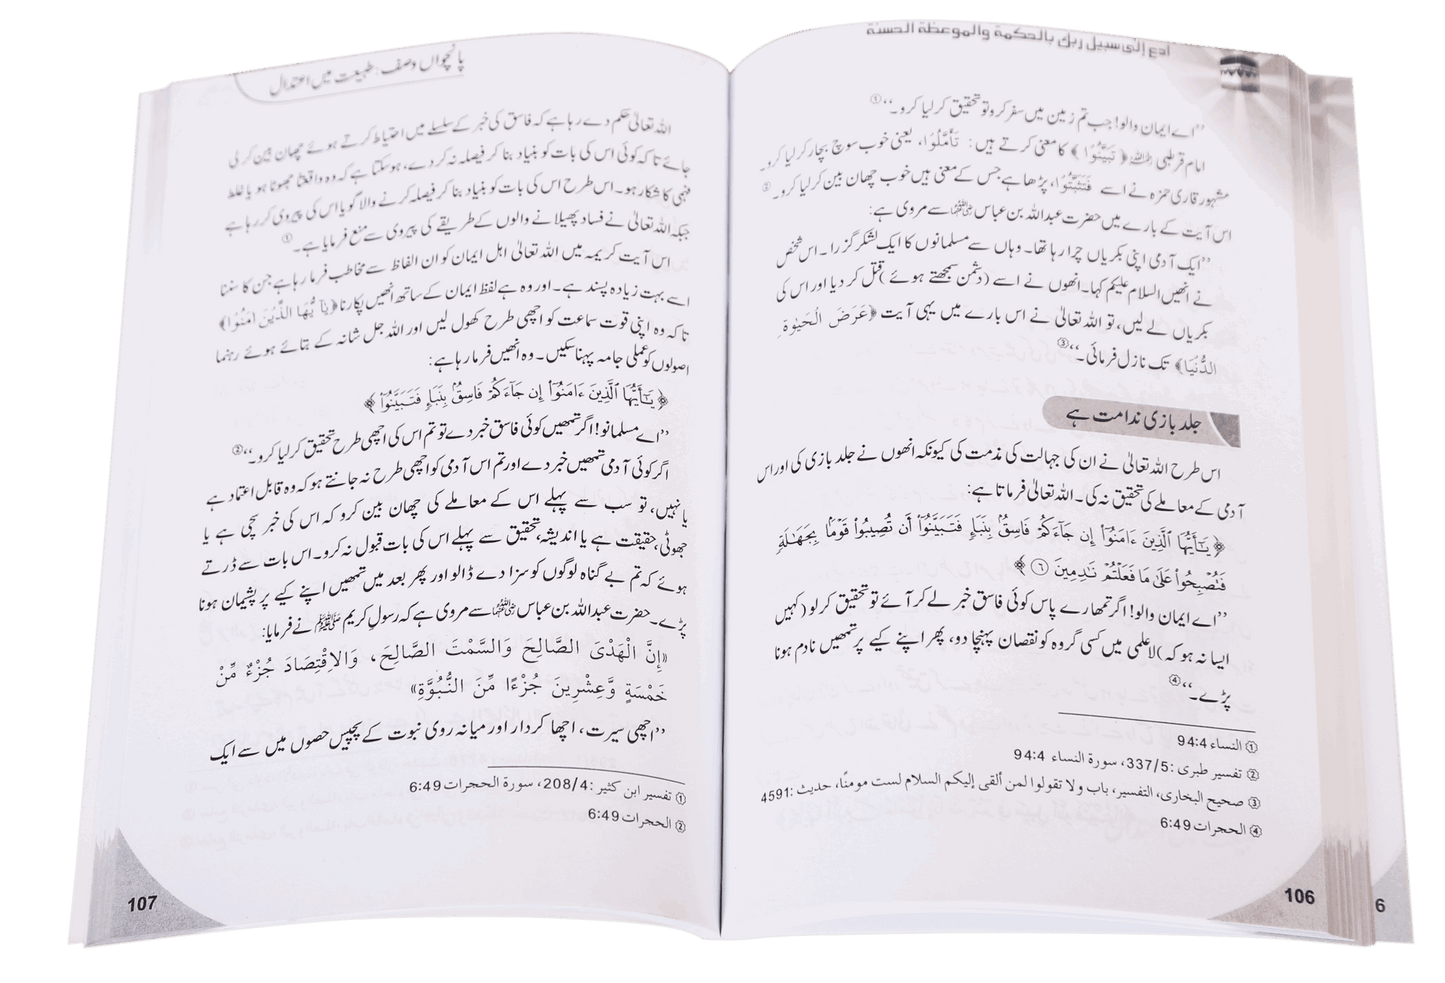 ادع إلى سبيل ربك بالحكمة والموعظة الحسنة
’’اے ایمان والو! جب تم زمین میں سفر کرو تو تحقیق کر لیا کرو۔‘‘①
امام قرطبی رحمہ اللہ ﴿تَبَيَّنُوْا﴾ کا معنی کرتے ہیں: تَأَمَّلُوْا، یعنی خوب سوچ بچار کر لیا کرو۔
مشہور قاری حمزہ نے اسے فَتَثَبَّتُوْا، پڑھا ہے جس کے معنی ہیں خوب چھان بین کر لیا کرو۔②
اس آیت کے بارے میں حضرت عبداللہ بن عباس رضی اللہ عنہما سے مروی ہے:
’’ایک آدمی اپنی بکریاں چرا رہا تھا۔ وہاں سے مسلمانوں کا ایک لشکر گزرا۔ اس شخص
نے انھیں السلام علیکم کہا۔ انھوں نے اسے (دشمن سمجھتے ہوئے) قتل کر دیا اور اس کی
بکریاں لے لیں، تو اللہ تعالیٰ نے اس بارے میں یہی آیت ﴿عَرَضَ الْحَيٰوةِ
الدُّنْيَا﴾ تک نازل فرمائی۔‘‘③
جلد بازی ندامت ہے
اس طرح اللہ تعالیٰ نے ان کی جہالت کی مذمت کی کیونکہ انھوں نے جلد بازی کی اور اس
آدمی کے معاملے کی تحقیق نہ کی۔ اللہ تعالیٰ فرماتا ہے:
﴿يَـٰٓأَيُّهَا ٱلَّذِينَ ءَامَنُوٓا۟ إِن جَآءَكُمْ فَاسِقٌۢ بِنَبَإٍ فَتَبَيَّنُوٓا۟ أَن تُصِيبُوا۟ قَوْمًۢا بِجَهَـٰلَةٍ
فَتُصْبِحُوا۟ عَلَىٰ مَا فَعَلْتُمْ نَـٰدِمِينَ ٦﴾
’’اے ایمان والو! اگر تمھارے پاس کوئی فاسق خبر لے کر آئے تو تحقیق کر لو (کہیں
ایسا نہ ہو کہ) لاعلمی میں کسی گروہ کو نقصان پہنچا دو، پھر اپنے کیے پر تمھیں نادم ہونا
پڑے۔‘‘④
① النساء 94:4
② تفسير طبري: 337/5، سورة النساء 94:4
③ صحيح البخاري، التفسير، باب ولا تقولوا لمن ألقى إليكم السلام لست مومنًا، حديث: 4591
④ الحجرات 6:49
106
6
پانچواں وصف: طبیعت میں اعتدال
اللہ تعالیٰ حکم دے رہا ہے کہ فاسق کی خبر کے سلسلے میں احتیاط کرتے ہوئے چھان بین کر لی
جائے تاکہ کوئی اس کی بات کو بنیاد بنا کر فیصلہ نہ کر دے، ہو سکتا ہے کہ وہ واقعتاً جھوٹا ہو یا غلط
فہمی کا شکار ہو۔ اس طرح اس کی بات کو بنیاد بنا کر فیصلہ کرنے والا گویا اس کی پیروی کر رہا ہے
جبکہ اللہ تعالیٰ نے فساد پھیلانے والوں کے طریقے کی پیروی سے منع فرمایا ہے۔①
اس آیت کریمہ میں اللہ تعالیٰ اہل ایمان کو ان الفاظ سے مخاطب فرما رہا ہے جن کا سننا
اسے بہت زیادہ پسند ہے۔ اور وہ ہے لفظ ایمان کے ساتھ انھیں پکارنا ﴿يٰٓاَيُّهَا الَّذِيْنَ اٰمَنُوْا﴾
تاکہ وہ اپنی قوت سماعت کو اچھی طرح کھول لیں اور اللہ جل شانہ کے بتائے ہوئے رہنما
اصولوں کو عملی جامہ پہنا سکیں۔ وہ انھیں فرما رہا ہے:
﴿يَـٰٓأَيُّهَا ٱلَّذِينَ ءَامَنُوٓا۟ إِن جَآءَكُمْ فَاسِقٌۢ بِنَبَإٍ فَتَبَيَّنُوٓا۟﴾
’’اے مسلمانو! اگر تمھیں کوئی فاسق خبر دے تو تم اس کی اچھی طرح تحقیق کر لیا کرو۔‘‘②
اگر کوئی آدمی تمھیں خبر دے اور تم اس آدمی کو اچھی طرح نہ جانتے ہو کہ وہ قابل اعتماد ہے
یا نہیں، تو سب سے پہلے اس کے معاملے کی چھان بین کرو کہ اس کی خبر سچی ہے یا
جھوٹی، حقیقت ہے یا اندیشہ، تحقیق سے پہلے اس کی بات قبول نہ کرو۔ اس بات سے ڈرتے
ہوئے کہ تم بے گناہ لوگوں کو سزا دے ڈالو اور پھر بعد میں تمھیں اپنے کیے پر پشیمان ہونا
پڑے۔ حضرت عبداللہ بن عباس رضی اللہ عنہما سے مروی ہے کہ رسول کریم ﷺ نے فرمایا:
«إِنَّ الْهَدْيَ الصَّالِحَ وَالسَّمْتَ الصَّالِحَ، وَالاقْتِصَادَ جُزْءٌ مِّنْ
خَمْسَةٍ وَّعِشْرِينَ جُزْءًا مِّنَ النُّبُوَّةِ»
’’اچھی سیرت، اچھا کردار اور میانہ روی نبوت کے پچیس حصوں میں سے ایک
① تفسير ابن كثير: 208/4، سورة الحجرات 6:49
② الحجرات 6:49
107